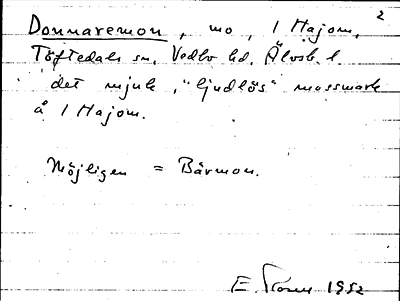 2
Donnaremon, mo, 1 Hajom,
Töftedals sn, Vedbo hd, Älvsb. l.
det mjuk, "ljudlös" mossmark
å 1 Hajom.
Möjligen = Bärmon.
E. 1952